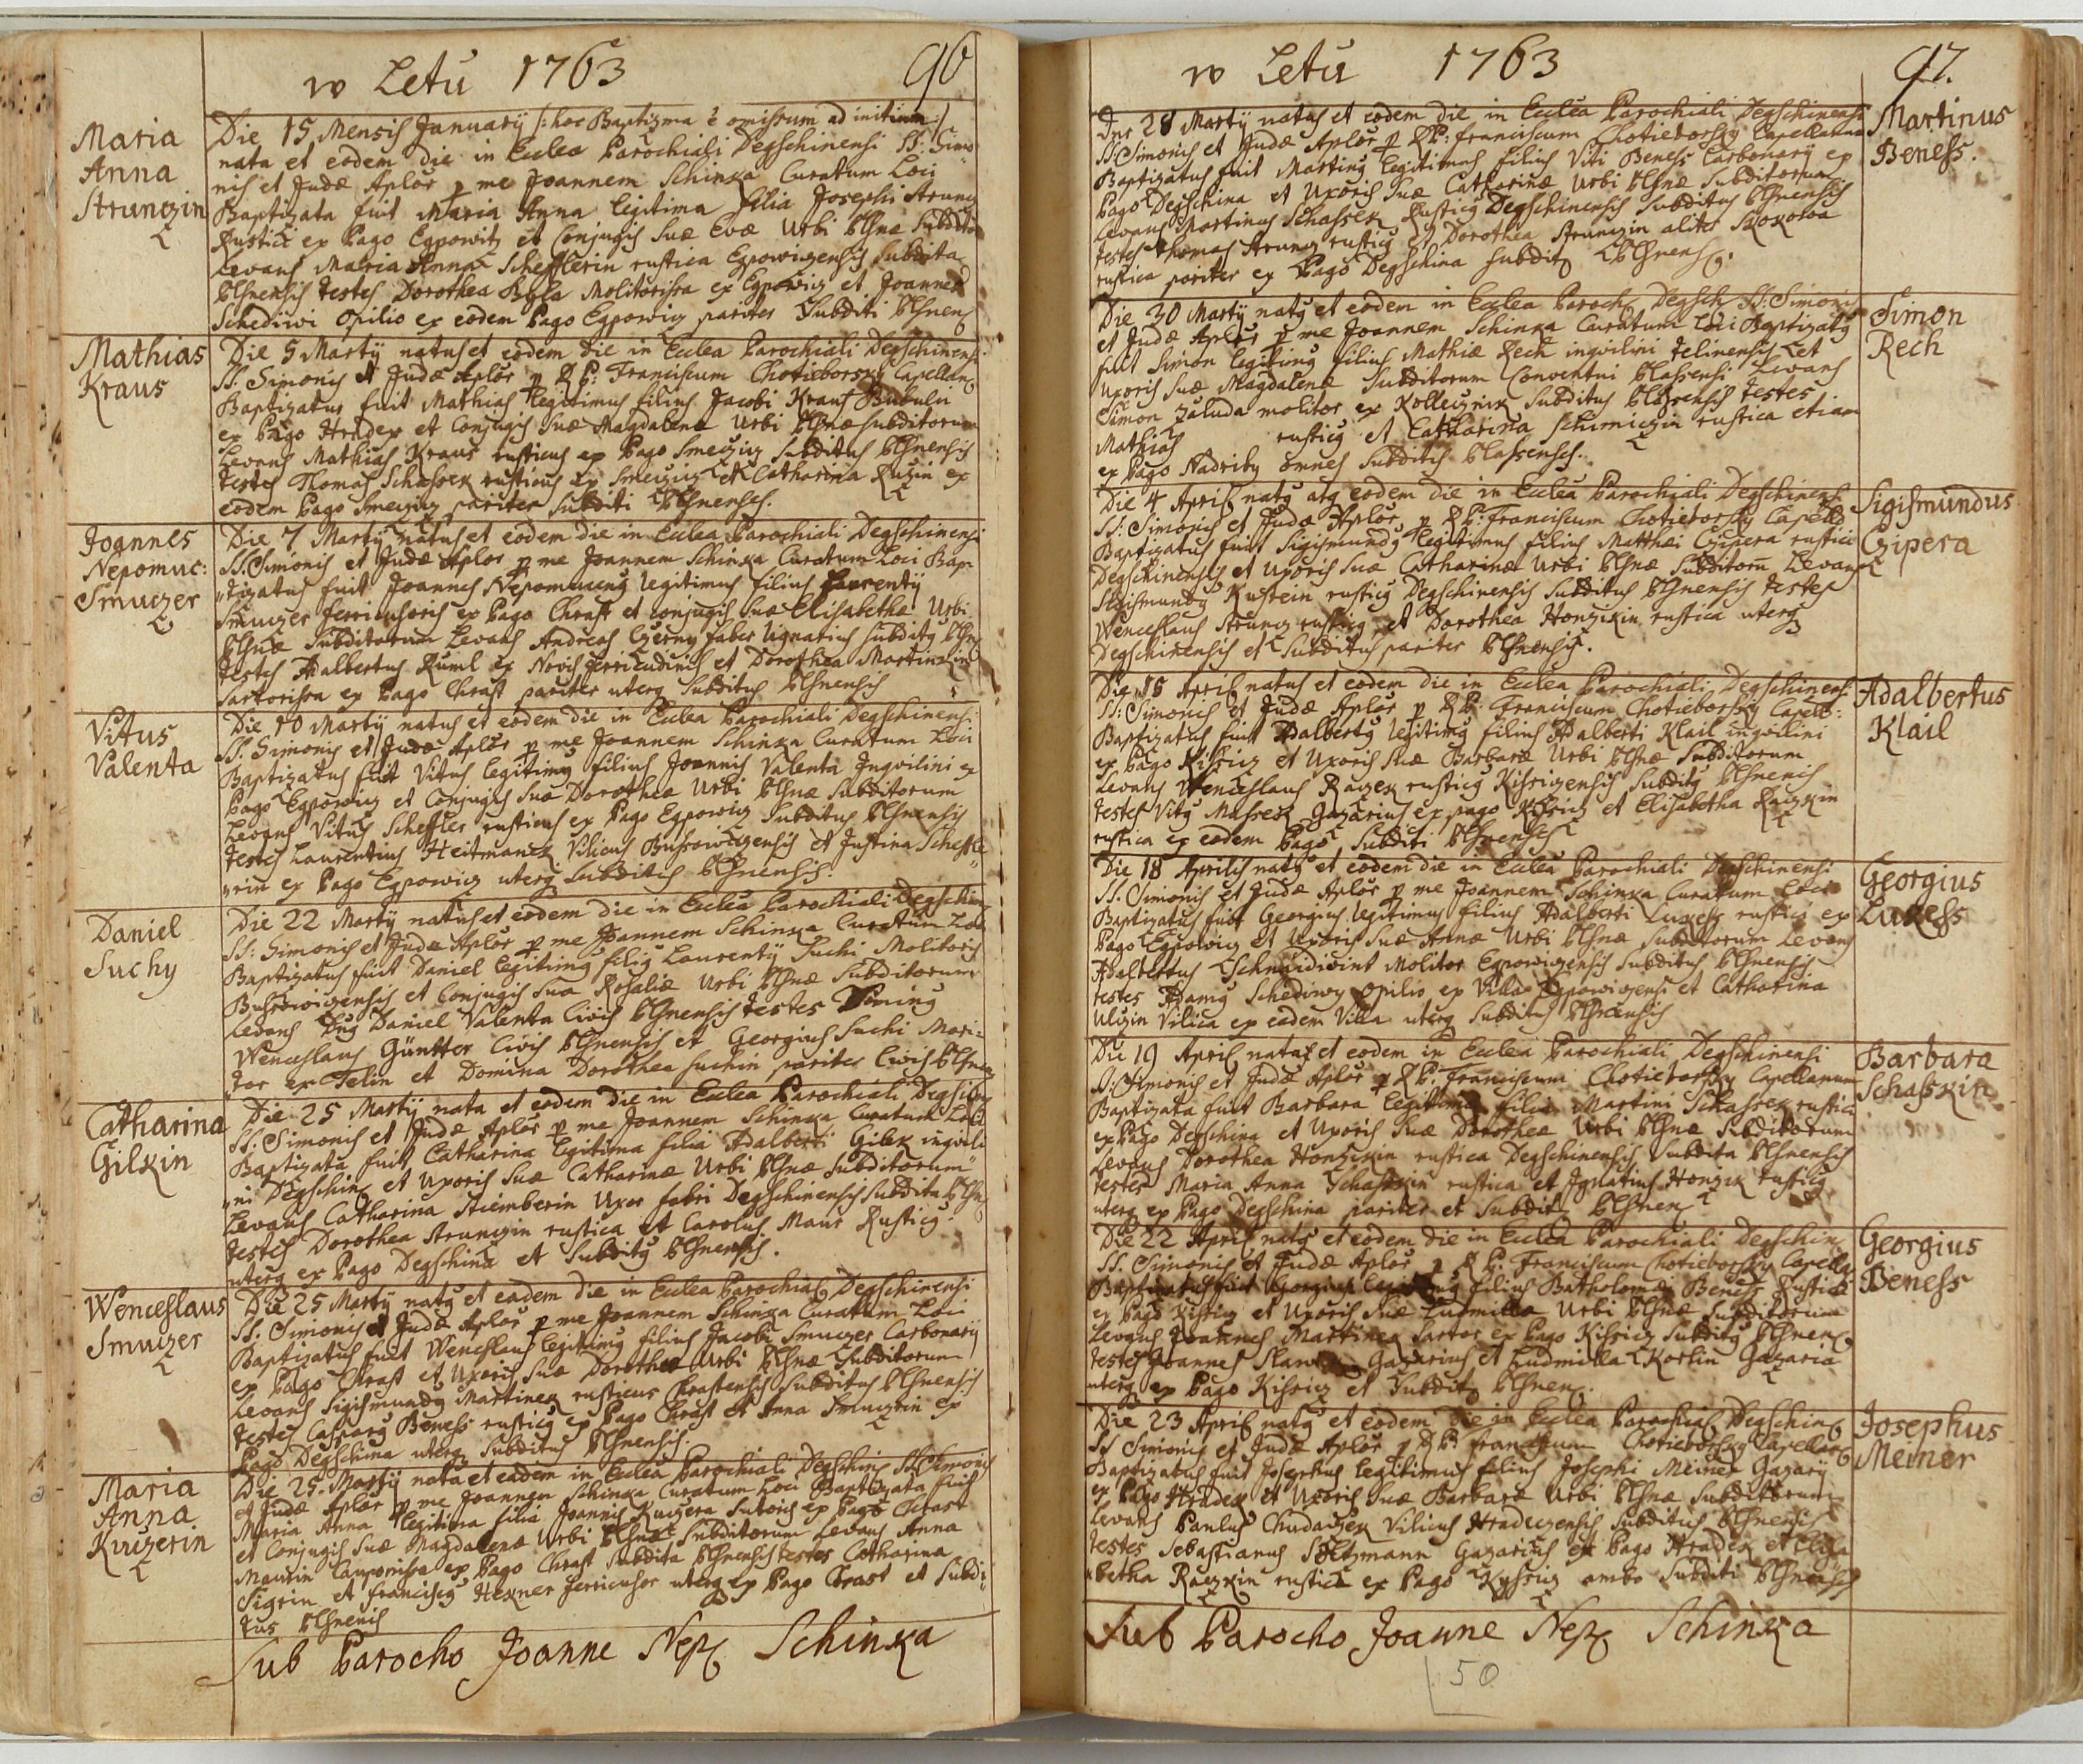 w Letu 1763 96
Maria
Anna
Strunczin
Die 15 Mensis January /: hoc Baptizma e omissum ad initium :/
nata et eodem die in Ecclea Parochiali Degschinensi SS: Simo
nis et Judæ Aplor p me Joannem Schinka Curatum Loci
Baptizata fuit Maria Anna legitima filia Josephi Strunc
Rustici ex Pago Egpowitz et Conjugis Suæ Evæ Urbi Plsnæ Subdito
Levans Maria Anna Schefflerin rustica Egpowizensis Subdita
Plsnensis testes Dorothea Byla Molitorissa ex Egpowicz et Joannes
Schediwi Opilio ex eodem Pago Egpowicz pariter Subditi Plsnen
Mathias
Kraus
Die 5 Martÿ natus et eodem die in Ecclea Parochiali Degschinensi
SS: Simonis et Judæ Aplor p R P: Franciscum Chotieborsky Capellan
Baptizatus fuit Mathias legitimus filius Jacobi Kraus Bubulci
ex Pago Hradex et Conjugis Suæ Magdalenæ Urbi Plsnæ Subditorum
Levans Mathias Kraus rusticus ex Pago Smeczicz Subditus Plsnensis
testes Thomas Schassek rusticus ex Smeczicz et Catharina Ruzin ex
eodem Pago Smeczicz pariter Subditi Plsnenses.
Joannes
Nepomuc:
Smuczer
Die 7 Martÿ natus et eodem die in Ecclea Parochiali Degschinensi
SS: Simonis et Judæ Aplor p me Joannem Schinka Curatum Loci Bap-
"tizatus fuit Joannes Nepomucenus legitimus filius Laurentÿ
Smuczer ferricusoris ex Pago Chrast et conjugis Suæ Elisabethæ Urbi
Plsnæ Subditorum Levans Andreas Czerny faber lignarius Subditus Plsn
testes Adalbertus Ruml ex Novis ferricudinis et Dorothea Martinkin
Sartorissa ex Pago Chrast pariter uterq Subditus Plsnensis
Vitus
Valenta
Die 10 Martÿ natus et eodem die in Ecclea Parochiali Degschinensi
SS. Simonis et Judæ Aplor p me Joannem Schinka Curatum Loci
Baptizatus fuit Vitus legitimus filius Joannis Valenta Inqvilini ex
Pago Egpowicz et Conjugis Suæ Dorotheæ Urbi Plsnæ Subditorum
Levans Vitus Scheffler rusticus ex Pago Egpowicz Subditus Plsnensis
testes Laurentius Heitmanek Vilicus Bussowizensis et Justina Scheffle
"rin ex Pago Egpowicz uterq Subditus Plsnensis.
Daniel
Suchy
Die 22 Martÿ natus et eodem die in Ecclea Parochiali Degschin
SS: Simonis et Judæ Aplor p me Joannem Schinka Curatum Loci
Baptizatus fuit Daniel legitimus filius Laurentÿ Suchi Molitoris
Bussowizensis et Conjugis Suæ Rosaliæ Urbi Plsnæ Subditorum
Levans Dnus Daniel Valenta Civis Plsnensis testes Dominus
Wenceslaus Güntter Civis Plsnensis et Georgius Suchi Moli:
tor ex Telin et Domina Dorothea Suchin pariter Civis Plsnen
Catharina
Gilkin
Die 25 Martÿ nata et eodem die in Ecclea Parochiali Degschin
SS: Simonis et Judæ Aplor p me Joannem Schinka Curatum Loci
Baptizata fuit Catharina legitima filia Adalberti Gilek inqvili
"ni Degschin et Uxoris Suæ Catharinæ Urbi Plsnæ Subditorum
Levans Catharina Stiemberin Uxor fabri Degschinensis Subdita Plsn
testes Dorothea Strunczin rustica et Carolus Maur Rusticus
uterq ex Pago Degschina et Subditus Plsnensis.
Wenceslaus
Smuczer
Die 25 Martÿ natus et eadem die in Ecclea Parochiali Degschinensi
SS. Simonis et Judæ Aplor p me Joannem Schinka Curatum Loci
Baptizatus fuit Wenceslaus legitimus filius Jacobi Smuczer Carbonarÿ
ex Pago Chrast et Uxoris Suæ Dorotheæ Urbi Plsnæ Subditorum
Levans Sigismundus Martinek rusticus Chrastensis Subditus Plsnensis
testes Casparus Beness rusticus ex Pago Chrast et Anna Smuczrin ex
Pago Degschina uterq Subditus Plsnensis.
Maria
Anna
Kuczerin
Die 25. Martÿ nata et eadem in Ecclea Parochiali Degschin SS Simonis
et Judæ Aplor p me Joannem Schinka Curatum Loci Baptizata fuit
Maria Anna legitima filia Joannis Kuczera Sutoris ex Pago Chrast
et Conjugis Suæ Magdalenæ Urbi Plsnæ Subditorum Levans Anna
Maurin Cauponissa ex Pago Chrast Subdita Plsnensis testes Catharina
Sigrin et Franciscus Hexner ferricusor uterq ex Pago Chrast et Subdi"
tus Plsnensis
Sub Parocho Joanne Nep Schinka
w Letu 1763 97.
Die 28 Martÿ natus et eodem die in Ecclea Parochiali Degschinensi
SS: Simonis et Judæ Aplor p R P: Franciscum Chotieborsky Capellanum
Baptizatus fuit Martinus legitimus filius Viti Beness Carbonarÿ ex
Pago Degschina et Uxoris Suæ Catharinæ Urbi Plsnæ Subditorum
Levans Martinus Schassek Rusticus Degschinensis Subditus Plsnensis
testes Thomas Strunc rusticus et Dorothea Strunczin aliter Skokowa
rustica pariter ex Pago Degschina Subditi Plsnens.
Martinus
Beness.
Die 30 Martÿ natus et eodem in Ecclea Paroch Degsch SS: Simonis
et Judæ Aplor p me Joannem Schinka Curatum Loci Baptizatus
fuit Simon legitimus filius Mathiæ Rech inqvilini Telinensis et
Uxoris Suæ Magdalenæ Subditorum Conventui Plassensi Levans
Simon Zaluda molitor ex Kolleczink Subditus Plassensis testes
Mathias rusticus et Catharina Schimiczin rustica etiam
ex Pago Nadriby omnes Subditi Plassenses.
Simon
Rech
Die 4 April natus atq eodem die in Ecclea Parochiali Degschinensi
SS: Simonis et Judæ Aplor p R P: Franciscum Chotieborsky Capella
Baptizatus fuit Sigismundus legitimus filius Matthæi Czipera rustici
Degschinensis et Uxoris Suæ Catharinæ Urbi Plsnæ Subditoru Levans
Sigismundus Kustein rusticus Degschinensis Subditus Plsnensis testes
Wenceslaus Strunc rusticus et Dorothea Honzikin rustica uterq
Degschinensis et Subditus pariter Plsnensis.
Sigismundus
Czipera
Die 15 April natus et eodem die in Ecclea Parochiali Degschinens.
SS: Simonis et Judæ Aplor p R P: Franciscum Chotieborsky Capell:
Baptizatus fuit Adalbertus legitimus filius Adalberti Klail inqvilini
ex Pago Kissicz et Uxoris Suæ Barbaræ Urbi Plsnæ Subditorum
Levans Wenceslaus Raczek rusticus Kissizensis Subditus Plsnensis
testes Vitus Massek Gazarius ex pago Kissicz et Elisabetha Raczkin
rustica ex eodem Pago Subditi Plsnenses
Adalbertus
Klail
Die 18 Aprilis natus et eodem die in Ecclea Parochiali Degschinensi
SS. Simonis et Judæ Aplor p me Joannem Schinka Curatum Loci
Baptizatus fuit Georgius legitimus filius Adalberti Lukess rustici ex
Pago Egpowicz et Uxoris Suæ Annæ Urbi Plsnæ Subditorum Levans
Adalbertus Schmidivint Molitor Egpowizensis Subditus Plsnensis
testes Adamus Schediwy Opilio ex Villa Egpowizensi et Catharina
Ulizin Vilica ex eadem Villa uterq Subditus Plsnensis
Georgius
Lukess
Die 19 April nata et eodem in Ecclea Parochiali Degschinensi
SS: Simonis et Judæ Aplor p R P: Franciscum Chotieborsky Capellanum
Baptizata fuit Barbara legitima filia Martini Schassek rustici
ex Pago Degschina et Uxoris Suæ Dorotheæ Urbi Plsnæ Subditorum
Levans Dorothea Honzikin rustica Degschinensis Subdita Plsnensis
testes Maria Anna Schasskin rustica et Ignatius Honzik rusticus
uterq ex Pago Degschina pariter et Subdit Plsnen
Barbara
Schasskin
Die 22 April natus et eodem die in Ecclea Parochiali Degschin
SS. Simonis et Judæ Aplor p R P. Franciscum Chotieborsky Capella
Baptizatus fuit Georgius legitimus filius Batholomæi Beness Rustici
ex Pago Kissicz et Uxoris Suæ Ludmillæ Urbi Plsnæ Subditorum
Levans Joannes Martinek Sartor ex Pago Kissicz Subditus Plsnen
testes Joannes Gazarius et Ludmilla Korlin Gazaria
uterq ex Pago Kissicz et Subdit Plsnen.
Georgius
Beness
Die 23 April natus et eodem die in Ecclea Parochiali Degschin
SS Simonis et Judæ Aplor p R P. Franciscum Chotieborsky Capellan
Baptizatus fuit Josephus legitimus filius Josephi Meiner Gazarÿ
ex Pago Hradek et Uxoris Suæ Barbaræ Urbi Plsnæ Subditorum
Levans Paulus Chudaczek Vilicus Hradezensis Subditus Plsnensis
testes Sebastianus Soltzmann Gazarius ex Pago Hradek et Eliza
"betha Raczkin rustica ex Pago Kyssicz ambo Subditi Plsnensis
Josephus
Meiner
Sub Parocho Joanne Nep Schinka
50